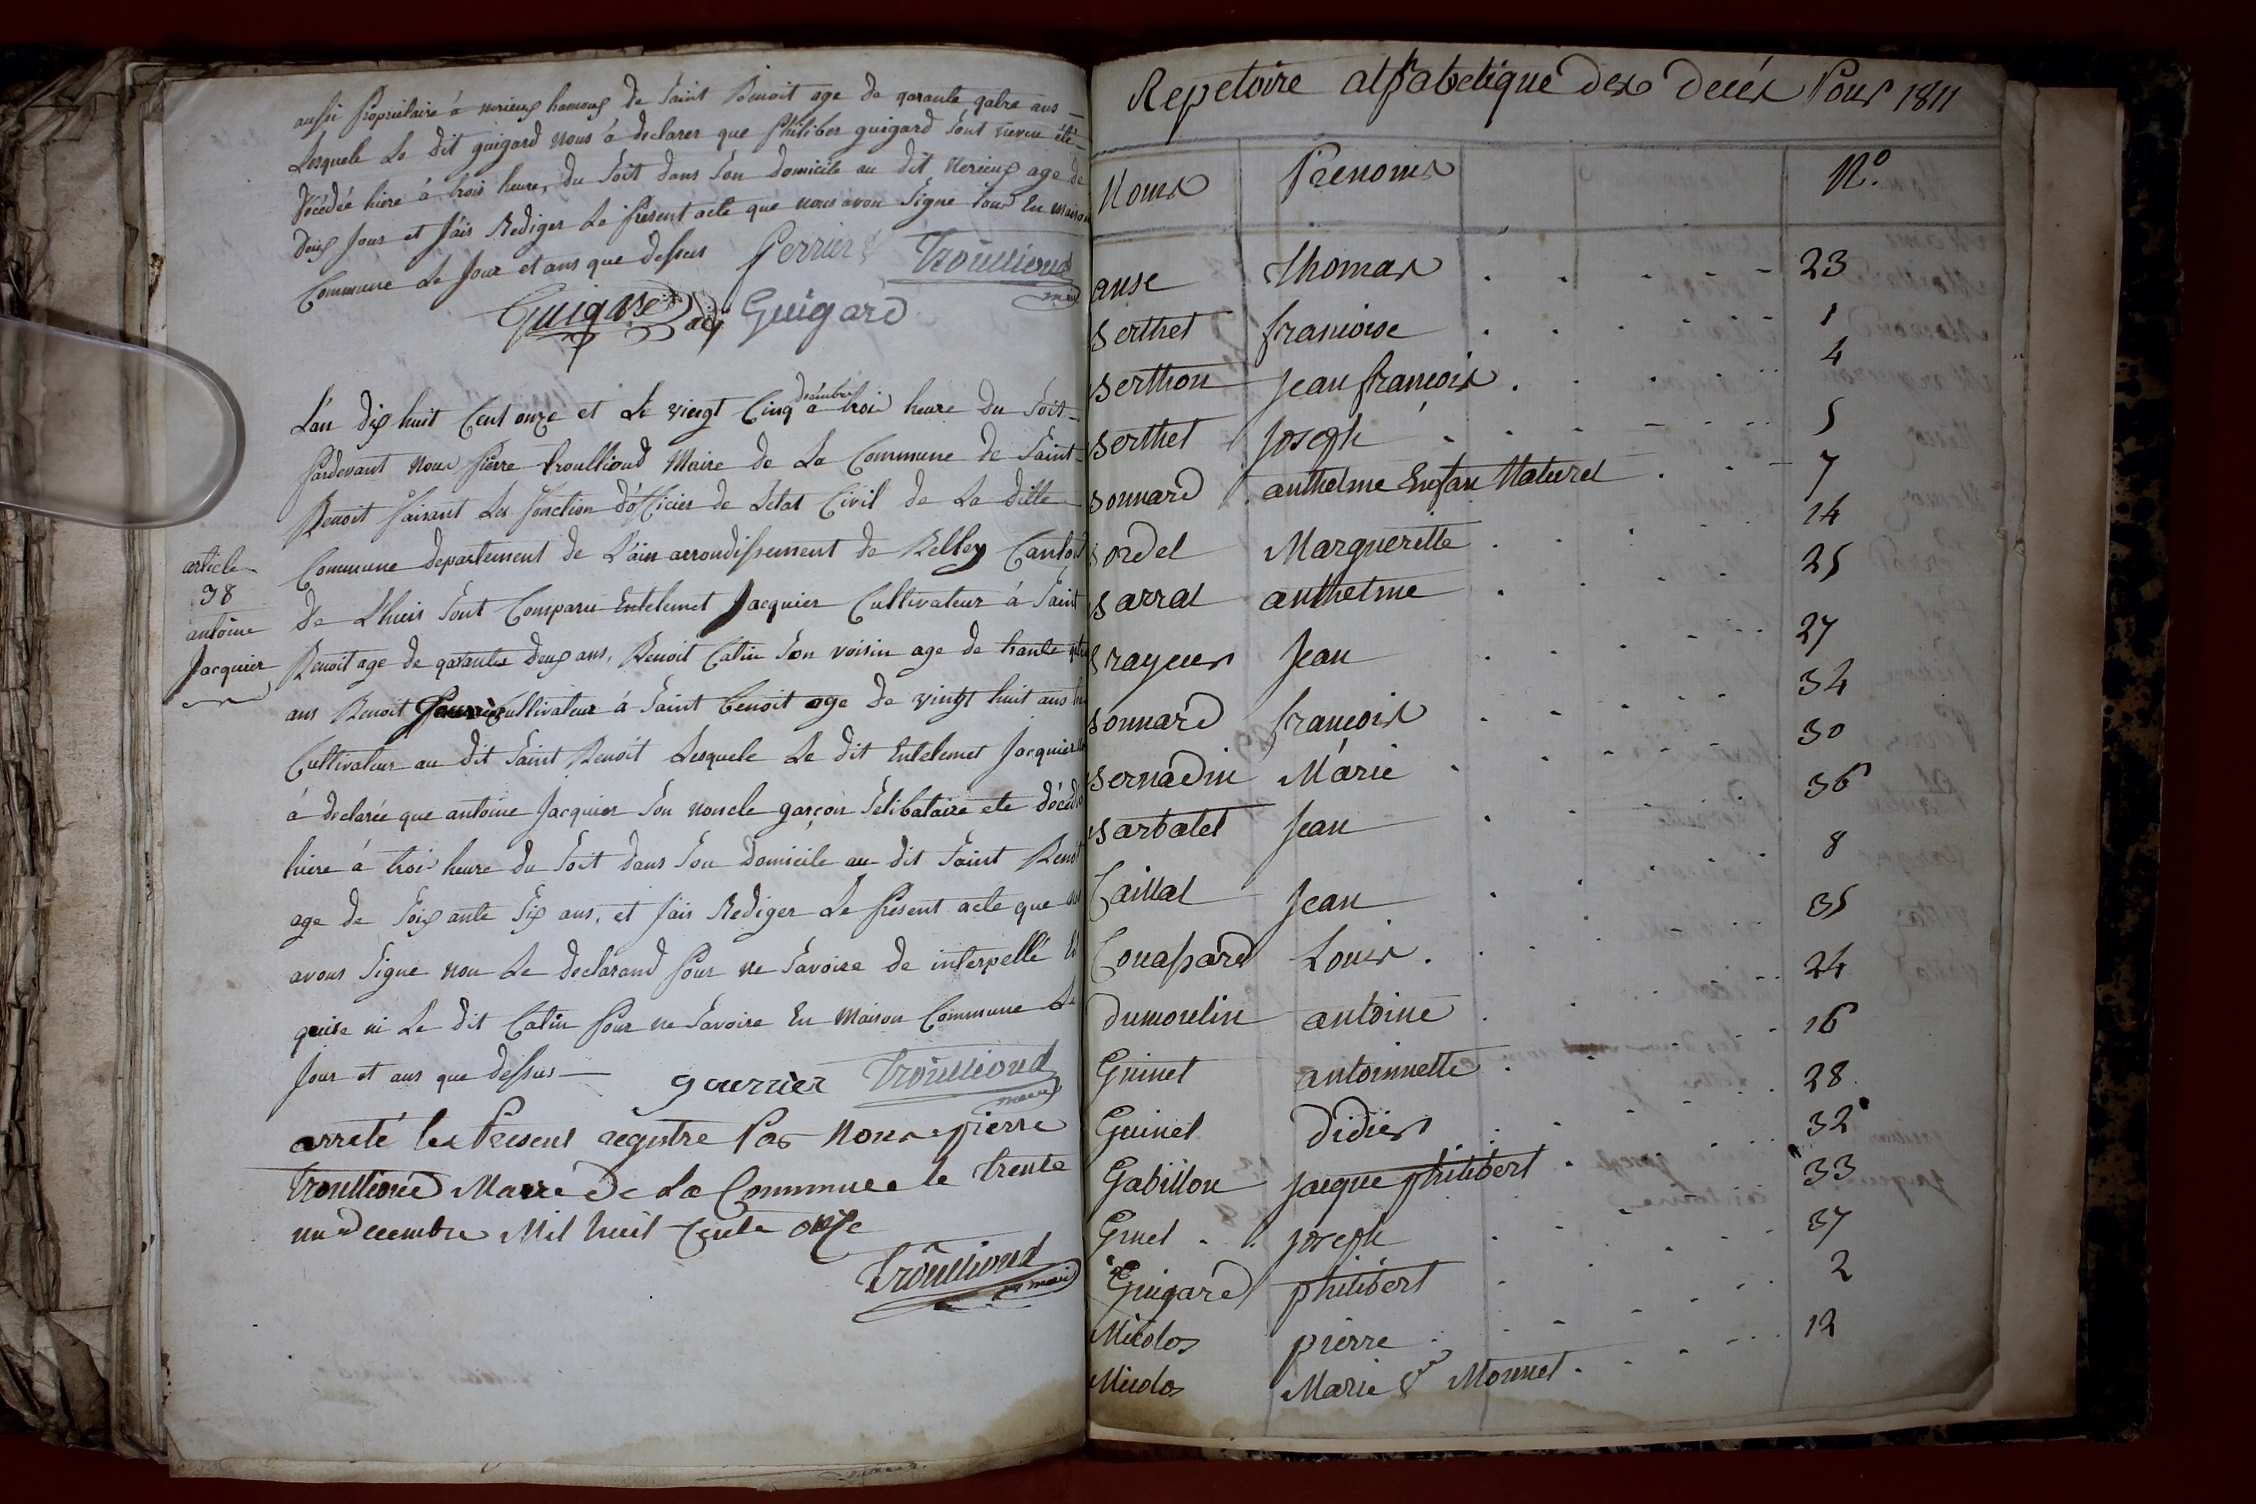 aussi propriétaire à nerieux hamoux de Saint Benoit age de qarante qatre ans
Lesquele Le dit guigard nous à declarer que philiber guigard Sont neveu été
décédée hiere à trois heures du Soit dans Son domicile au dit nerieux age de
deux Jour et J'ais Rediger Le present acte que nous avon Signe tous En maison
Commune Le Jour et ans que dessus
Perrier Troullioud
maire
Guigard Guigard
L'an dix huit Cent onze et Le vingt Cinq décembre à trois heure du Soit
pardevant nous pierre troullioud Maire de La Commune de Saint
Benoit faisant Les fonction d'officier de Letat Civil de La ditte
Commune departement de L'ain arrondissement de Belley Canton
article
38
antoine
Jacquier
de Lhuis Sont Comparu Entelemet Jacquier Cultivateur à Saint
Benoit age de qarante deux ans, Benoit Catin Son voisin age de trante
ans Benoit Gourrier Cultivateur à Saint Benoit age de vingt huit ans
Cultivateur au dit Saint Benoit Lesquele Le dit Entelemet Jacquier
à declarée que antoine Jacquier Son noncle garçon Selibataire ete décédé
hiere à trois heure du Soit dans Son domicile au dit Saint Benoit
age de Soixante Six ans, et Jais Rediger Le present acte que nous
avons Signe non Le declarand pour ne Savoire de interpellé
quise ni Le dit Catin pour ne Savoire En maison Commune Le
Jour et ans que dessus
gourrier Troullioud
maire
arreté Le present registre Par Nous pierre
Troullioud Maire De La Commune le Trente
un decembre Mil huit Cents onze
Troullioud
maire
Repetoire alphabetique des decés Pour 1811
Noms Prenoms N.o
anse Thomas 23
Berthet francoise 1
Berthon Jean francois 4
Berthet Joseph 5
Bonnard anthelme Enfan Naturel 7
Bordel Marguerette 14
Barral anthelme 25
Brayeur Jean 27
Bonnard francois 34
Bernadin Marie 30
Barbatet Jean 36
Caillat Jean 8
Couassard Louis 35
dumoulin antoine 24
Guinet antoinnette 16
Guinet didier 28
Gabillon Jacque philibert 32
Ginet Joseph 33
Guigard philibert 37
Micolos pierre 2
Micolos Marie Ve Monnet 12